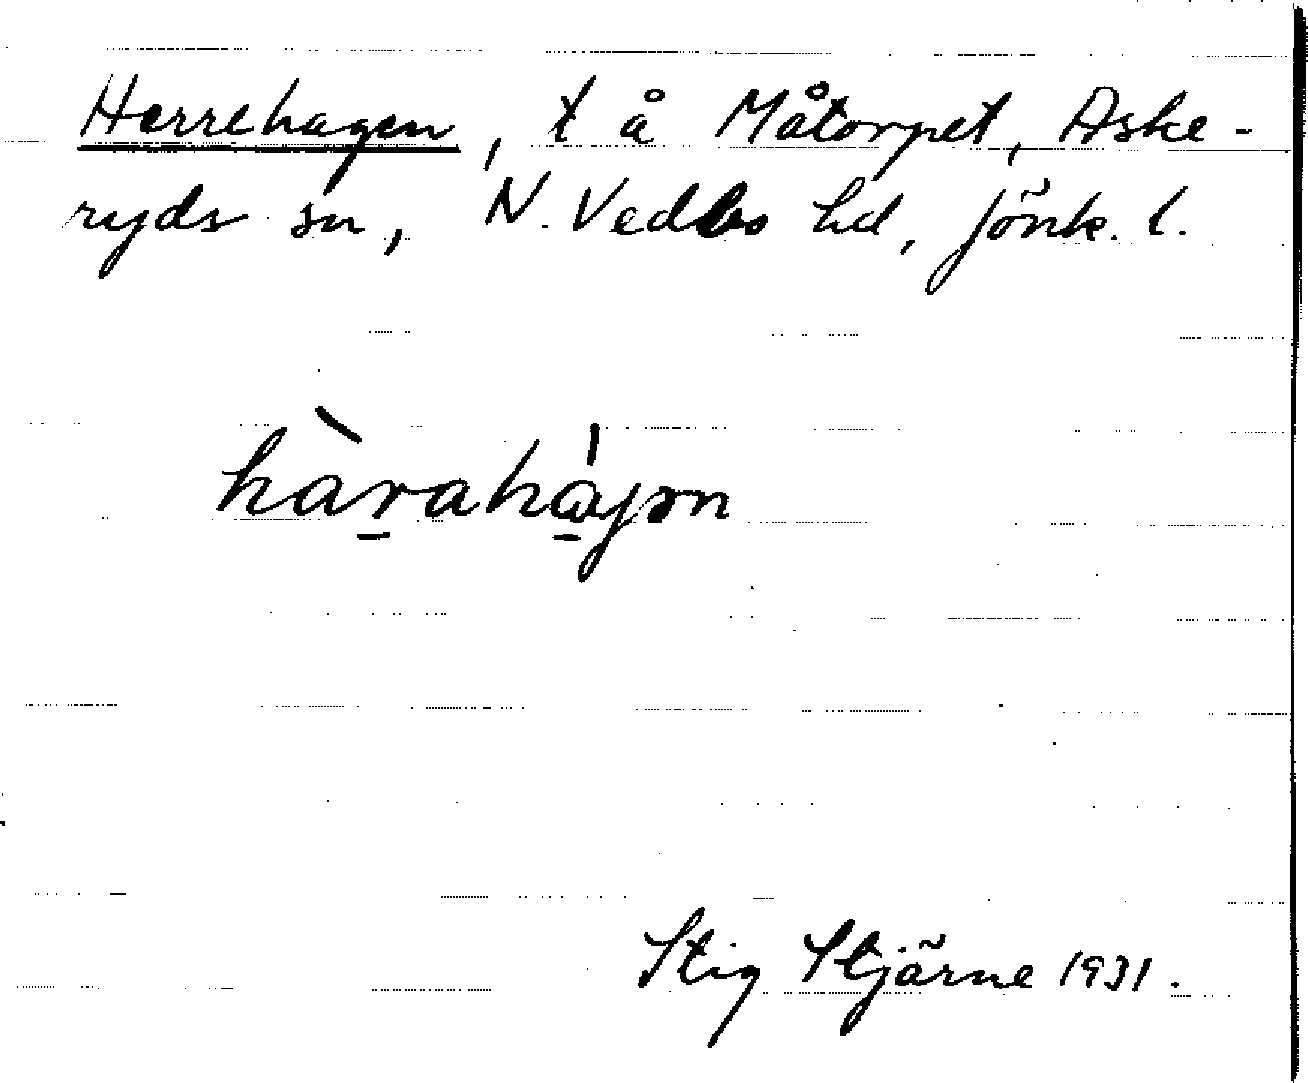 Herrehagen, t å Måtorpet, Aske-
ryds sn, N. Vedbo hd, Jönk. l.
hàrahájən
Stig Stjärne 1931.